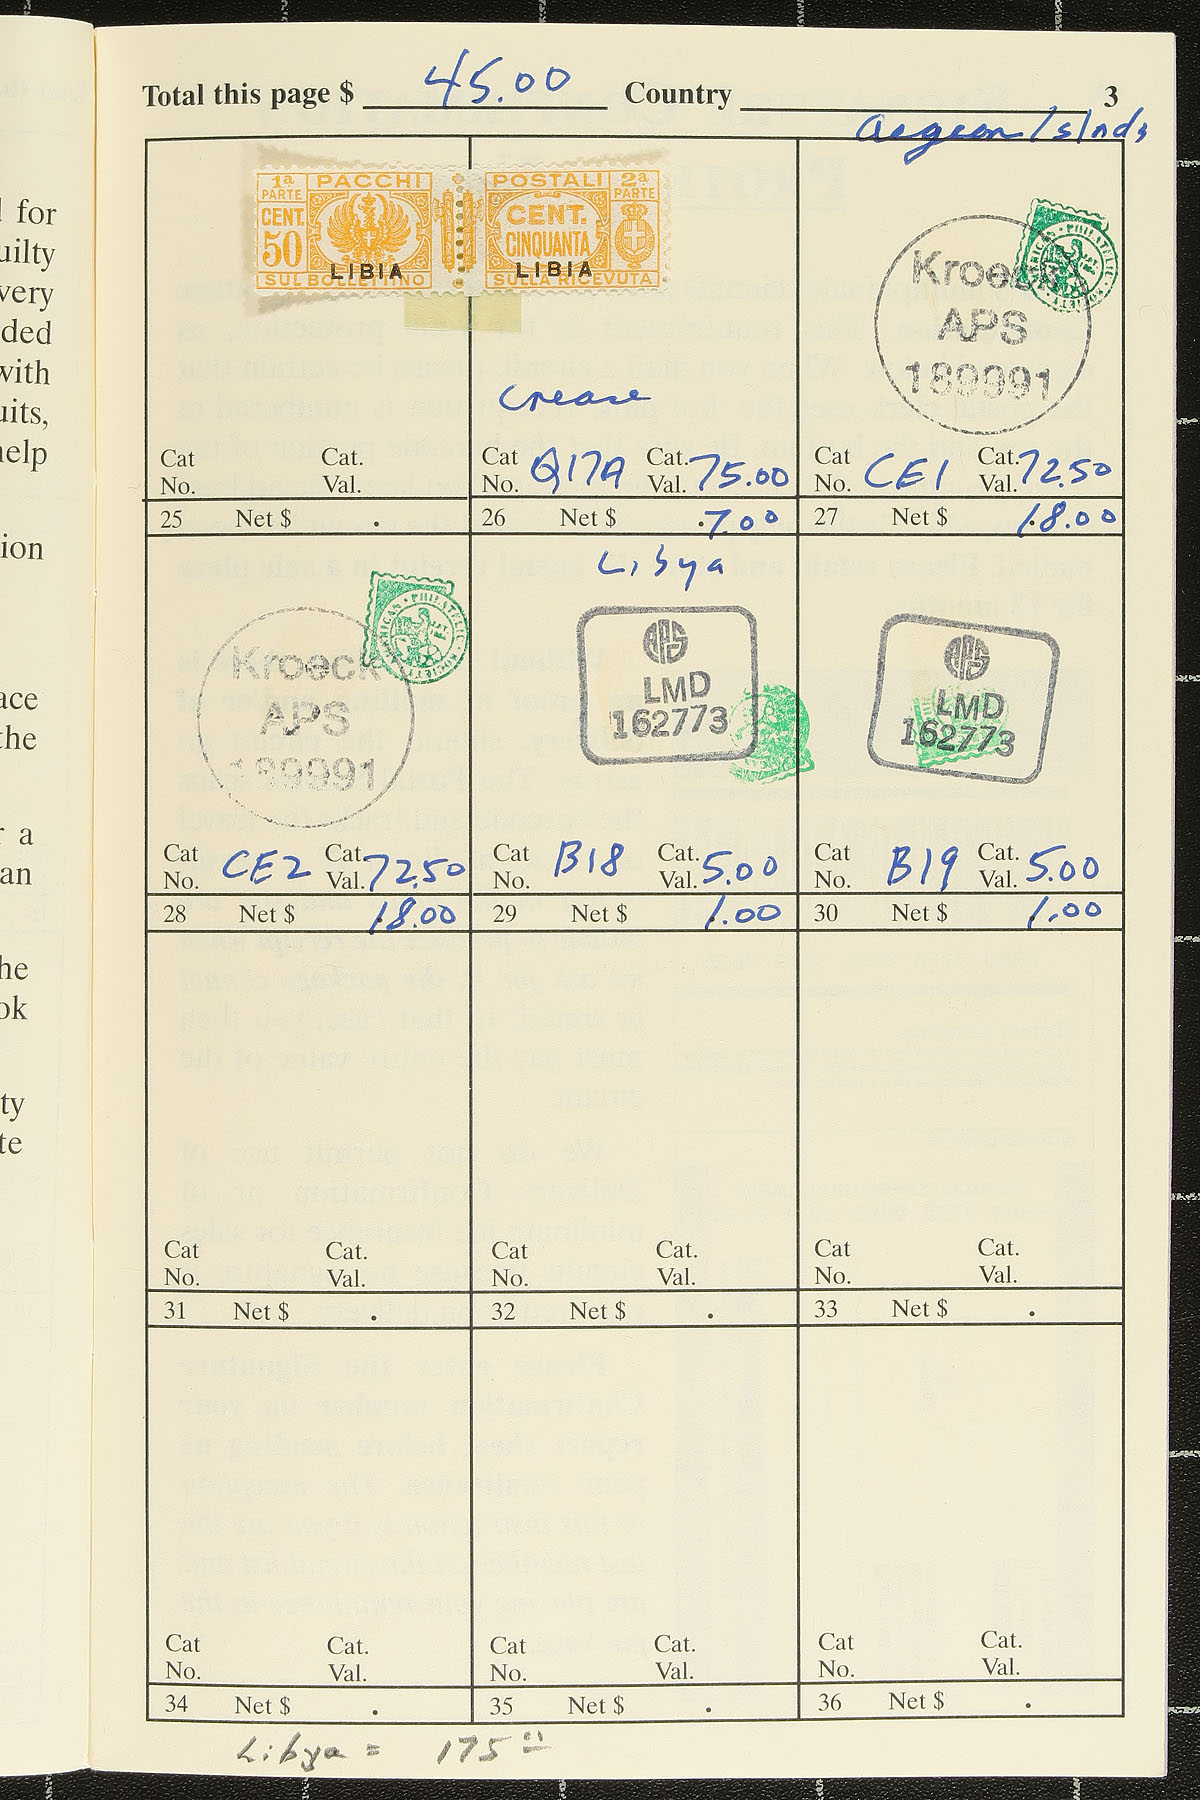 Total this page $ 45.00 Country 3
Aegean Islnds
1ª PARTE PACCHI POSTALI 2ª PARTE
CENT. 50 CENT. CINQUANTA
LIBIA LIBIA
SUL BOLLETTINO SULLA RICEVUTA
Kroeck
APS
189991
Crease
Cat No. Cat. Val.
25 Net $ .
Cat No. Q17A Cat. Val. 75.00
26 Net $ .7.00
Cat No. CE1 Cat. Val. 72.50
27 Net $ 18.00
Kroeck
APS
189991
AMERICAN PHILATELIC SOCIETY
Libya
APS
LMD
162773
APS
LMD
162773
Cat No. CE2 Cat. Val. 72.50
28 Net $ 18.00
Cat No. B18 Cat. Val. 5.00
29 Net $ 1.00
Cat No. B19 Cat. Val. 5.00
30 Net $ 1.00
Cat No. Cat. Val.
31 Net $ .
Cat No. Cat. Val.
32 Net $ .
Cat No. Cat. Val.
33 Net $ .
Cat No. Cat. Val.
34 Net $ .
Cat No. Cat. Val.
35 Net $ .
Cat No. Cat. Val.
36 Net $ .
Libya = 175
for
very
with
help
the
a
an